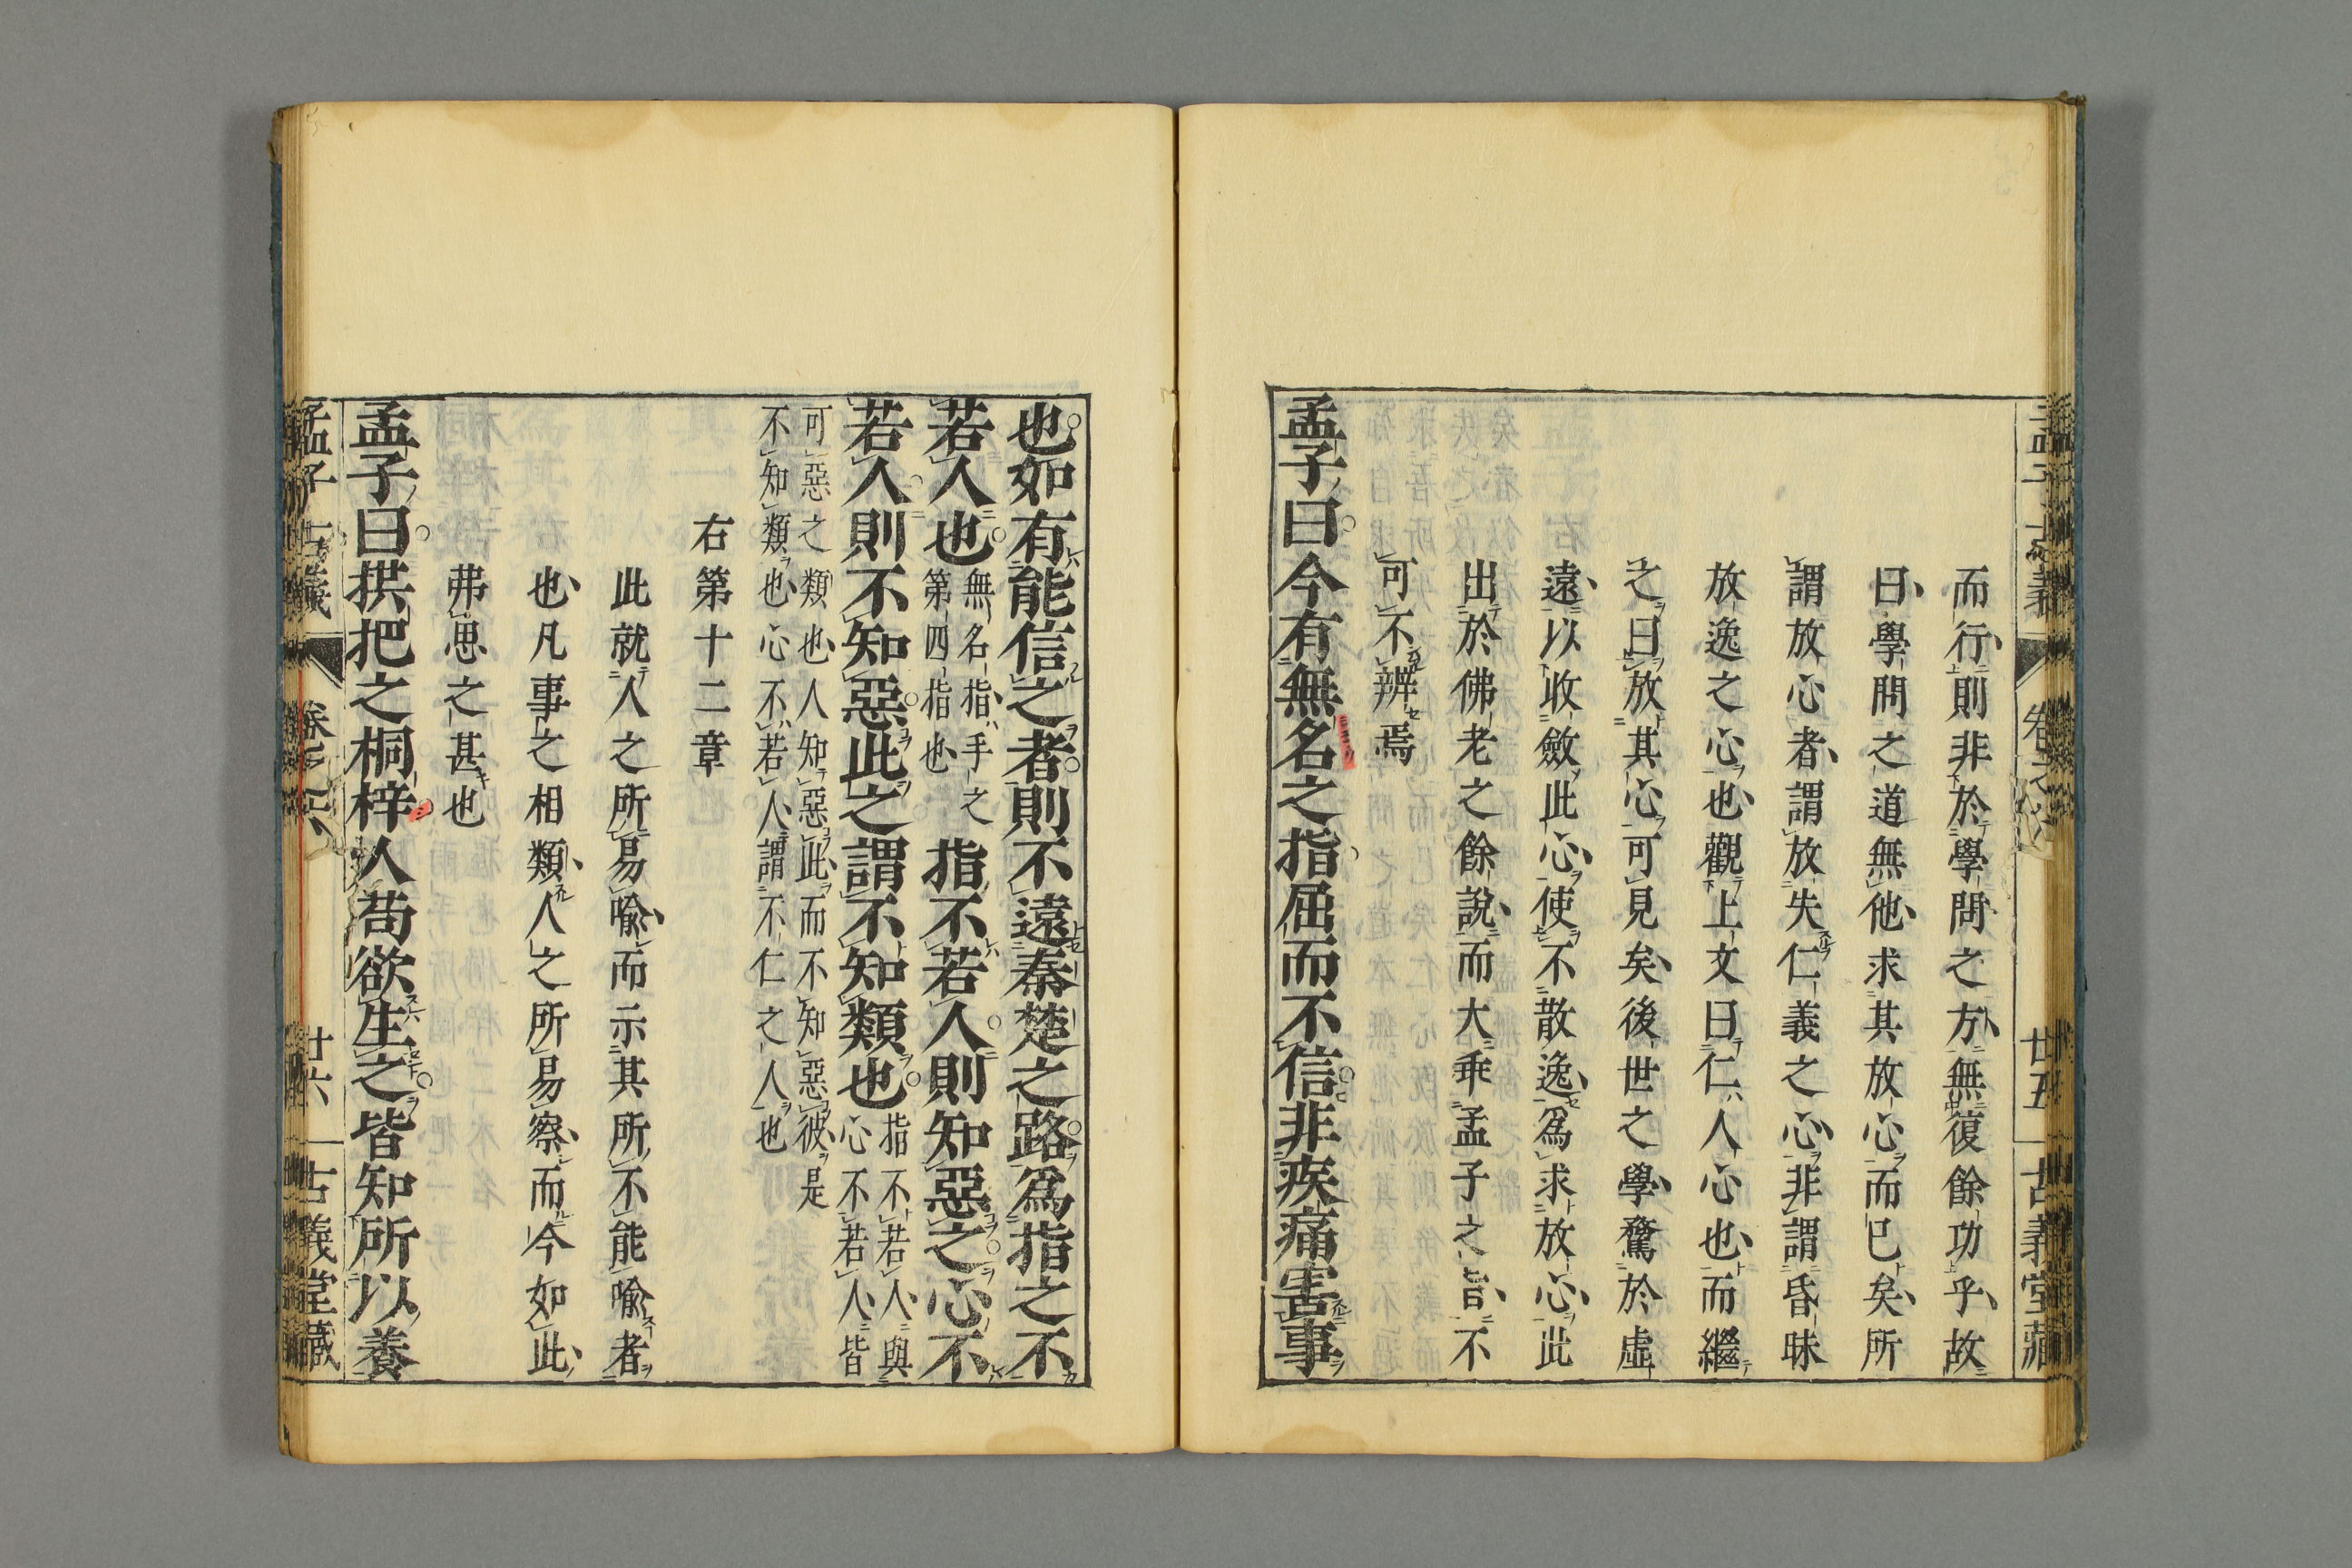 而行則非於學問之方無復餘功乎故
曰學問之道無他求其放心而已矣所
謂放心者謂放失仁義之心非謂昏昧
放逸之心也觀上文曰仁人心也而繼
之曰放其心可見矣後世之學騖於虛
遠以收斂此心使不散逸爲求放心此
出於佛老之餘說而大乖孟子之旨不
可不辨焉
孟子曰今有無名之指屈而不信非疾痛害事
也如有能信之者則不遠秦楚之路爲指之不
若人也
無名指手之
第四指也
指不若人則知惡之心不
若人則不知惡此之謂不知類也
指不若人與
心不若人皆
可惡之類也人知惡此而不知惡彼是
不知類也心不若人謂不仁之人也
右第十二章
此就人之所易喩而示其所不能喩者
也凡事之相類人之所易察而今如此
弗思之甚也
孟子曰拱把之桐梓人苟欲生之皆知所以養
孟子古義
卷之六
廿五
古義堂藏
孟子古義
卷之六
廿六
古義堂藏